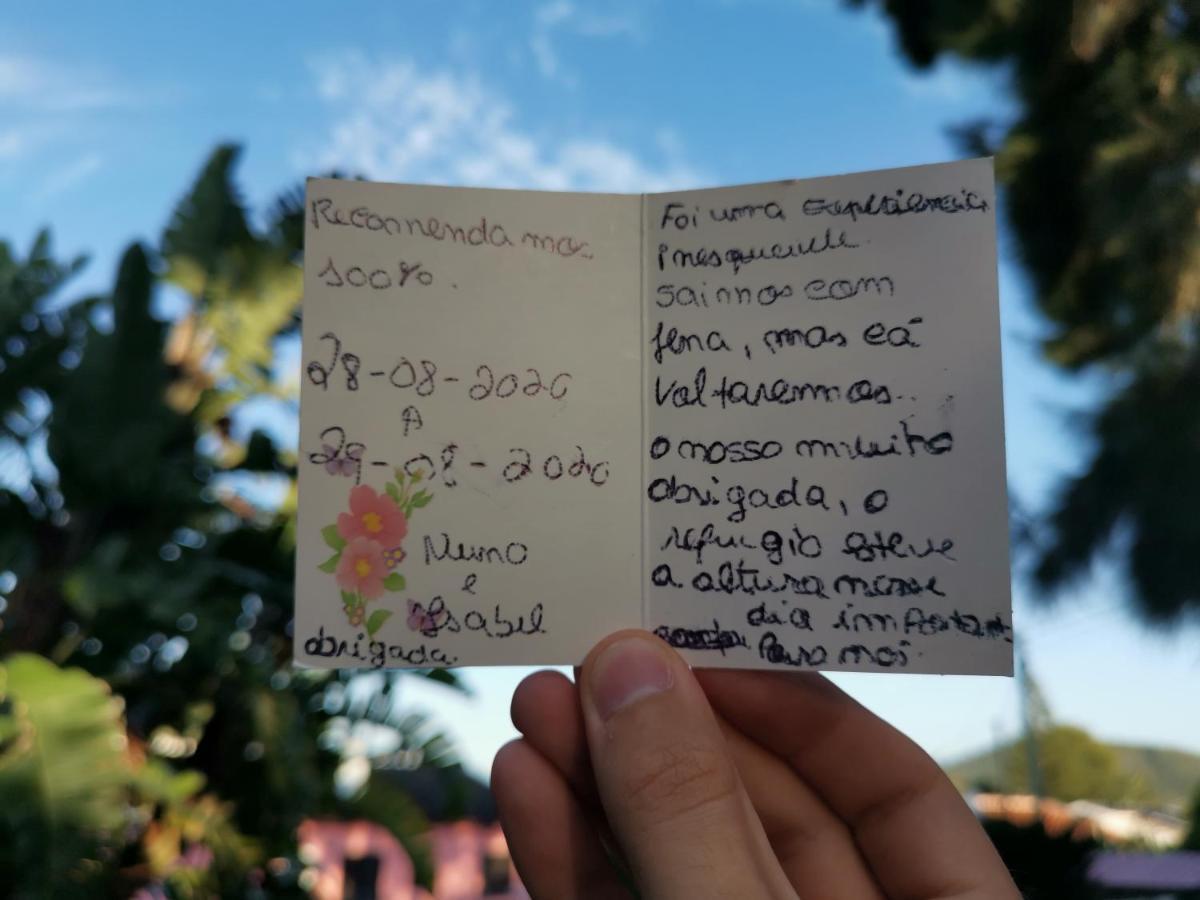 Recomendamos
100%.
28-08-2020
A
29-08-2020
Nuno
e
Isabel
obrigada.
Foi uma experiência
saimos com
pena, mas cá
voltaremos..
o nosso muito
obrigada, o
refugio esteve
a altura nesse
dia important
Para nos.